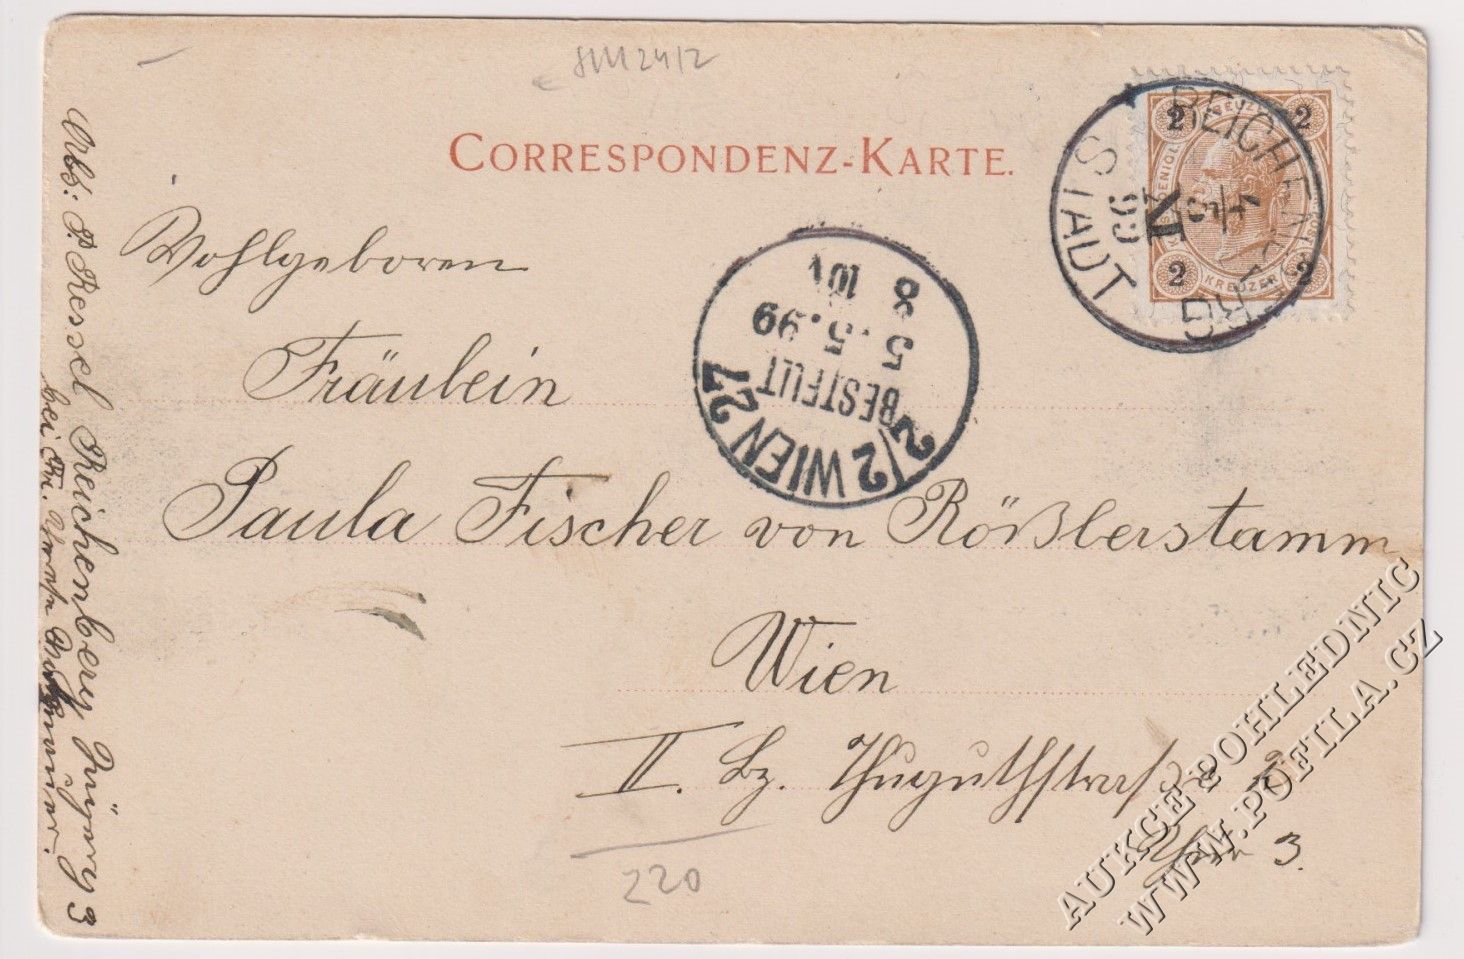 CORRESPONDENZ-KARTE.
Wohlgeboren
Fräulein
Paula Fischer von Rößlerstamm
Wien
II. Bz. Thuguthstraße 2
Thür 3.
220
Abs: P. Ressel Reichenberg
3
bei Fr.
REICHENBERG
STADT
5/5
99
N
2 KREUZER 2
2 KREUZER 2
2/2 WIEN 27
BESTELLT
5.5.99
8 10 V
AUKCE POHLEDNIC
WWW.POFILA.CZ